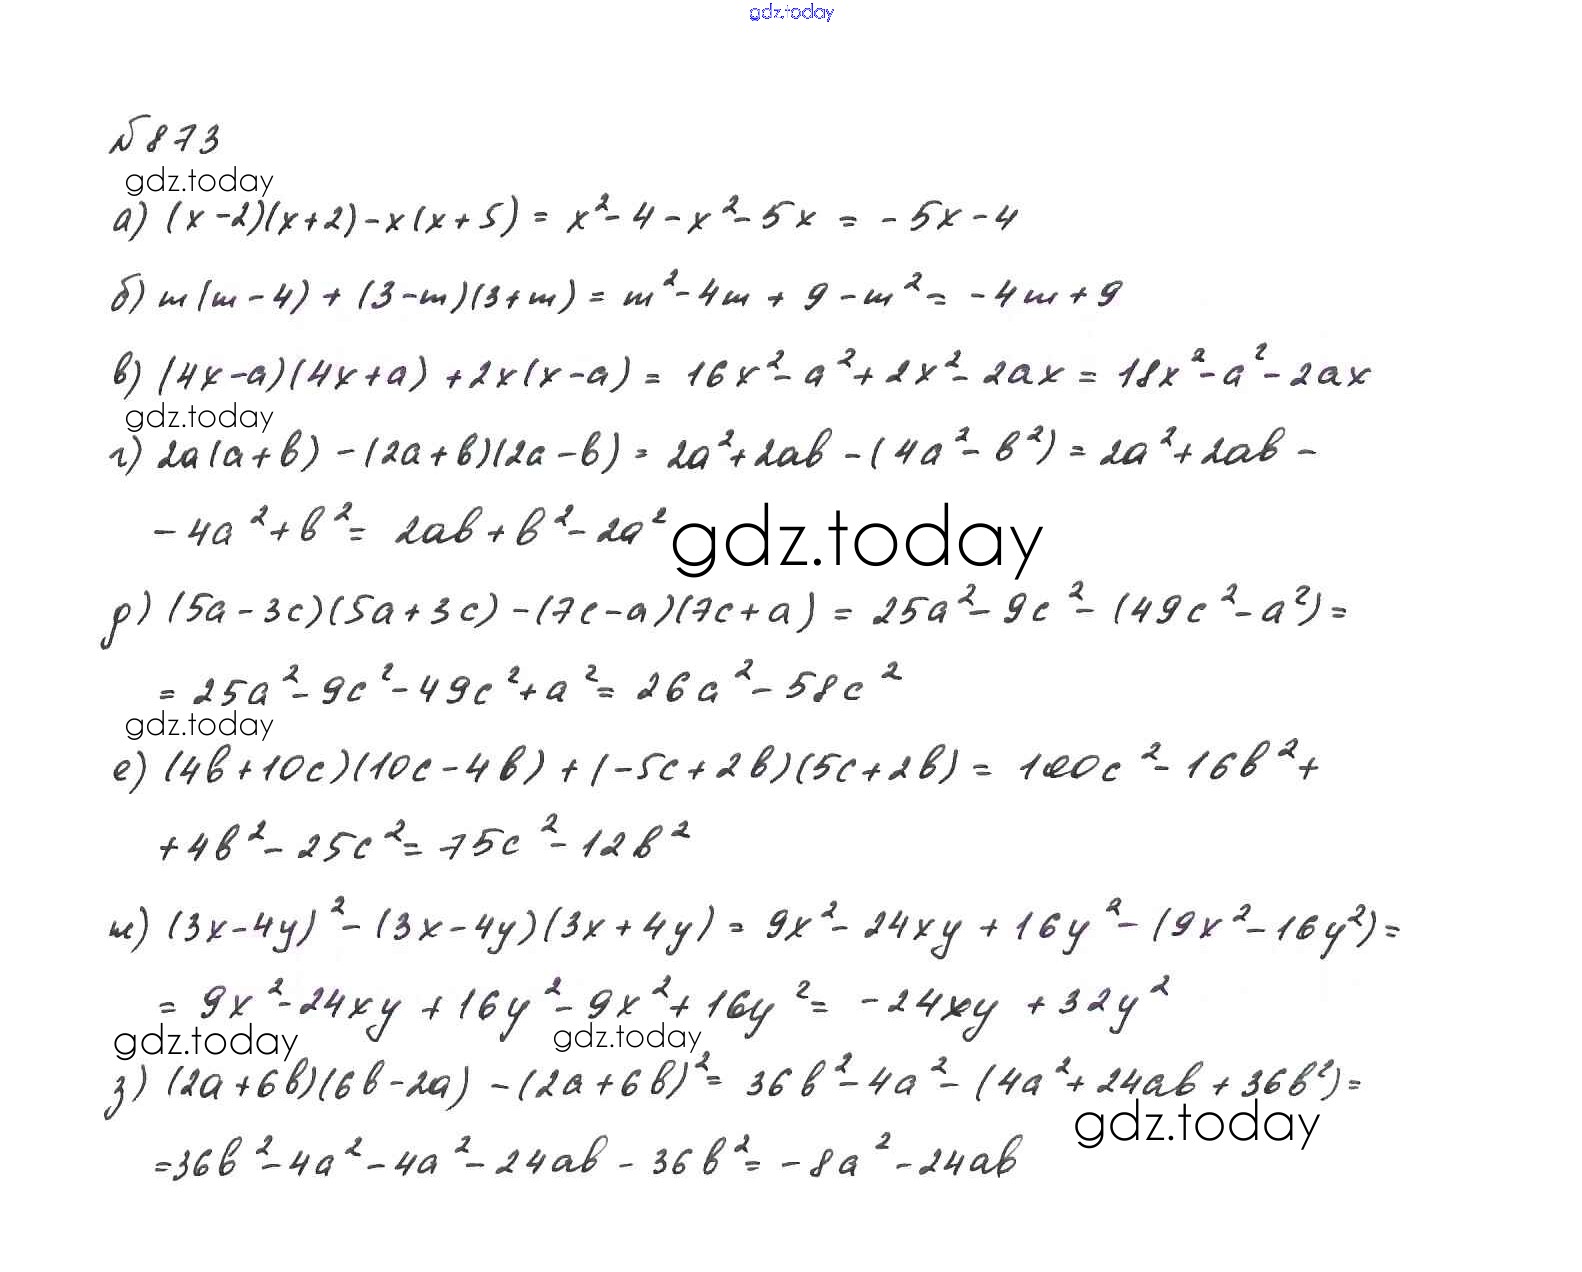 gdz.today
№873
gdz.today
а) (x-2)(x+2)-x(x+5) = x²-4-x²-5x = -5x-4
б) m(m-4)+(3-m)(3+m) = m²-4m+9-m² = -4m+9
в) (4x-a)(4x+a)+2x(x-a) = 16x²-a²+2x²-2ax = 18x²-a²-2ax
gdz.today
г) 2a(a+b)-(2a+b)(2a-b) = 2a²+2ab-(4a²-b²) = 2a²+2ab-
-4a²+b² = 2ab+b²-2a²
gdz.today
д) (5a-3c)(5a+3c)-(7c-a)(7c+a) = 25a²-9c²-(49c²-a²) =
= 25a²-9c²-49c²+a² = 26a²-58c²
gdz.today
е) (4b+10c)(10c-4b)+(-5c+2b)(5c+2b) = 100c²-16b²+
+4b²-25c² = 75c²-12b²
ж) (3x-4y)²-(3x-4y)(3x+4y) = 9x²-24xy+16y²-(9x²-16y²) =
= 9x²-24xy+16y²-9x²+16y² = -24xy+32y²
gdz.today
gdz.today
з) (2a+6b)(6b-2a)-(2a+6b)² = 36b²-4a²-(4a²+24ab+36b²) =
gdz.today
=36b²-4a²-4a²-24ab-36b² = -8a²-24ab